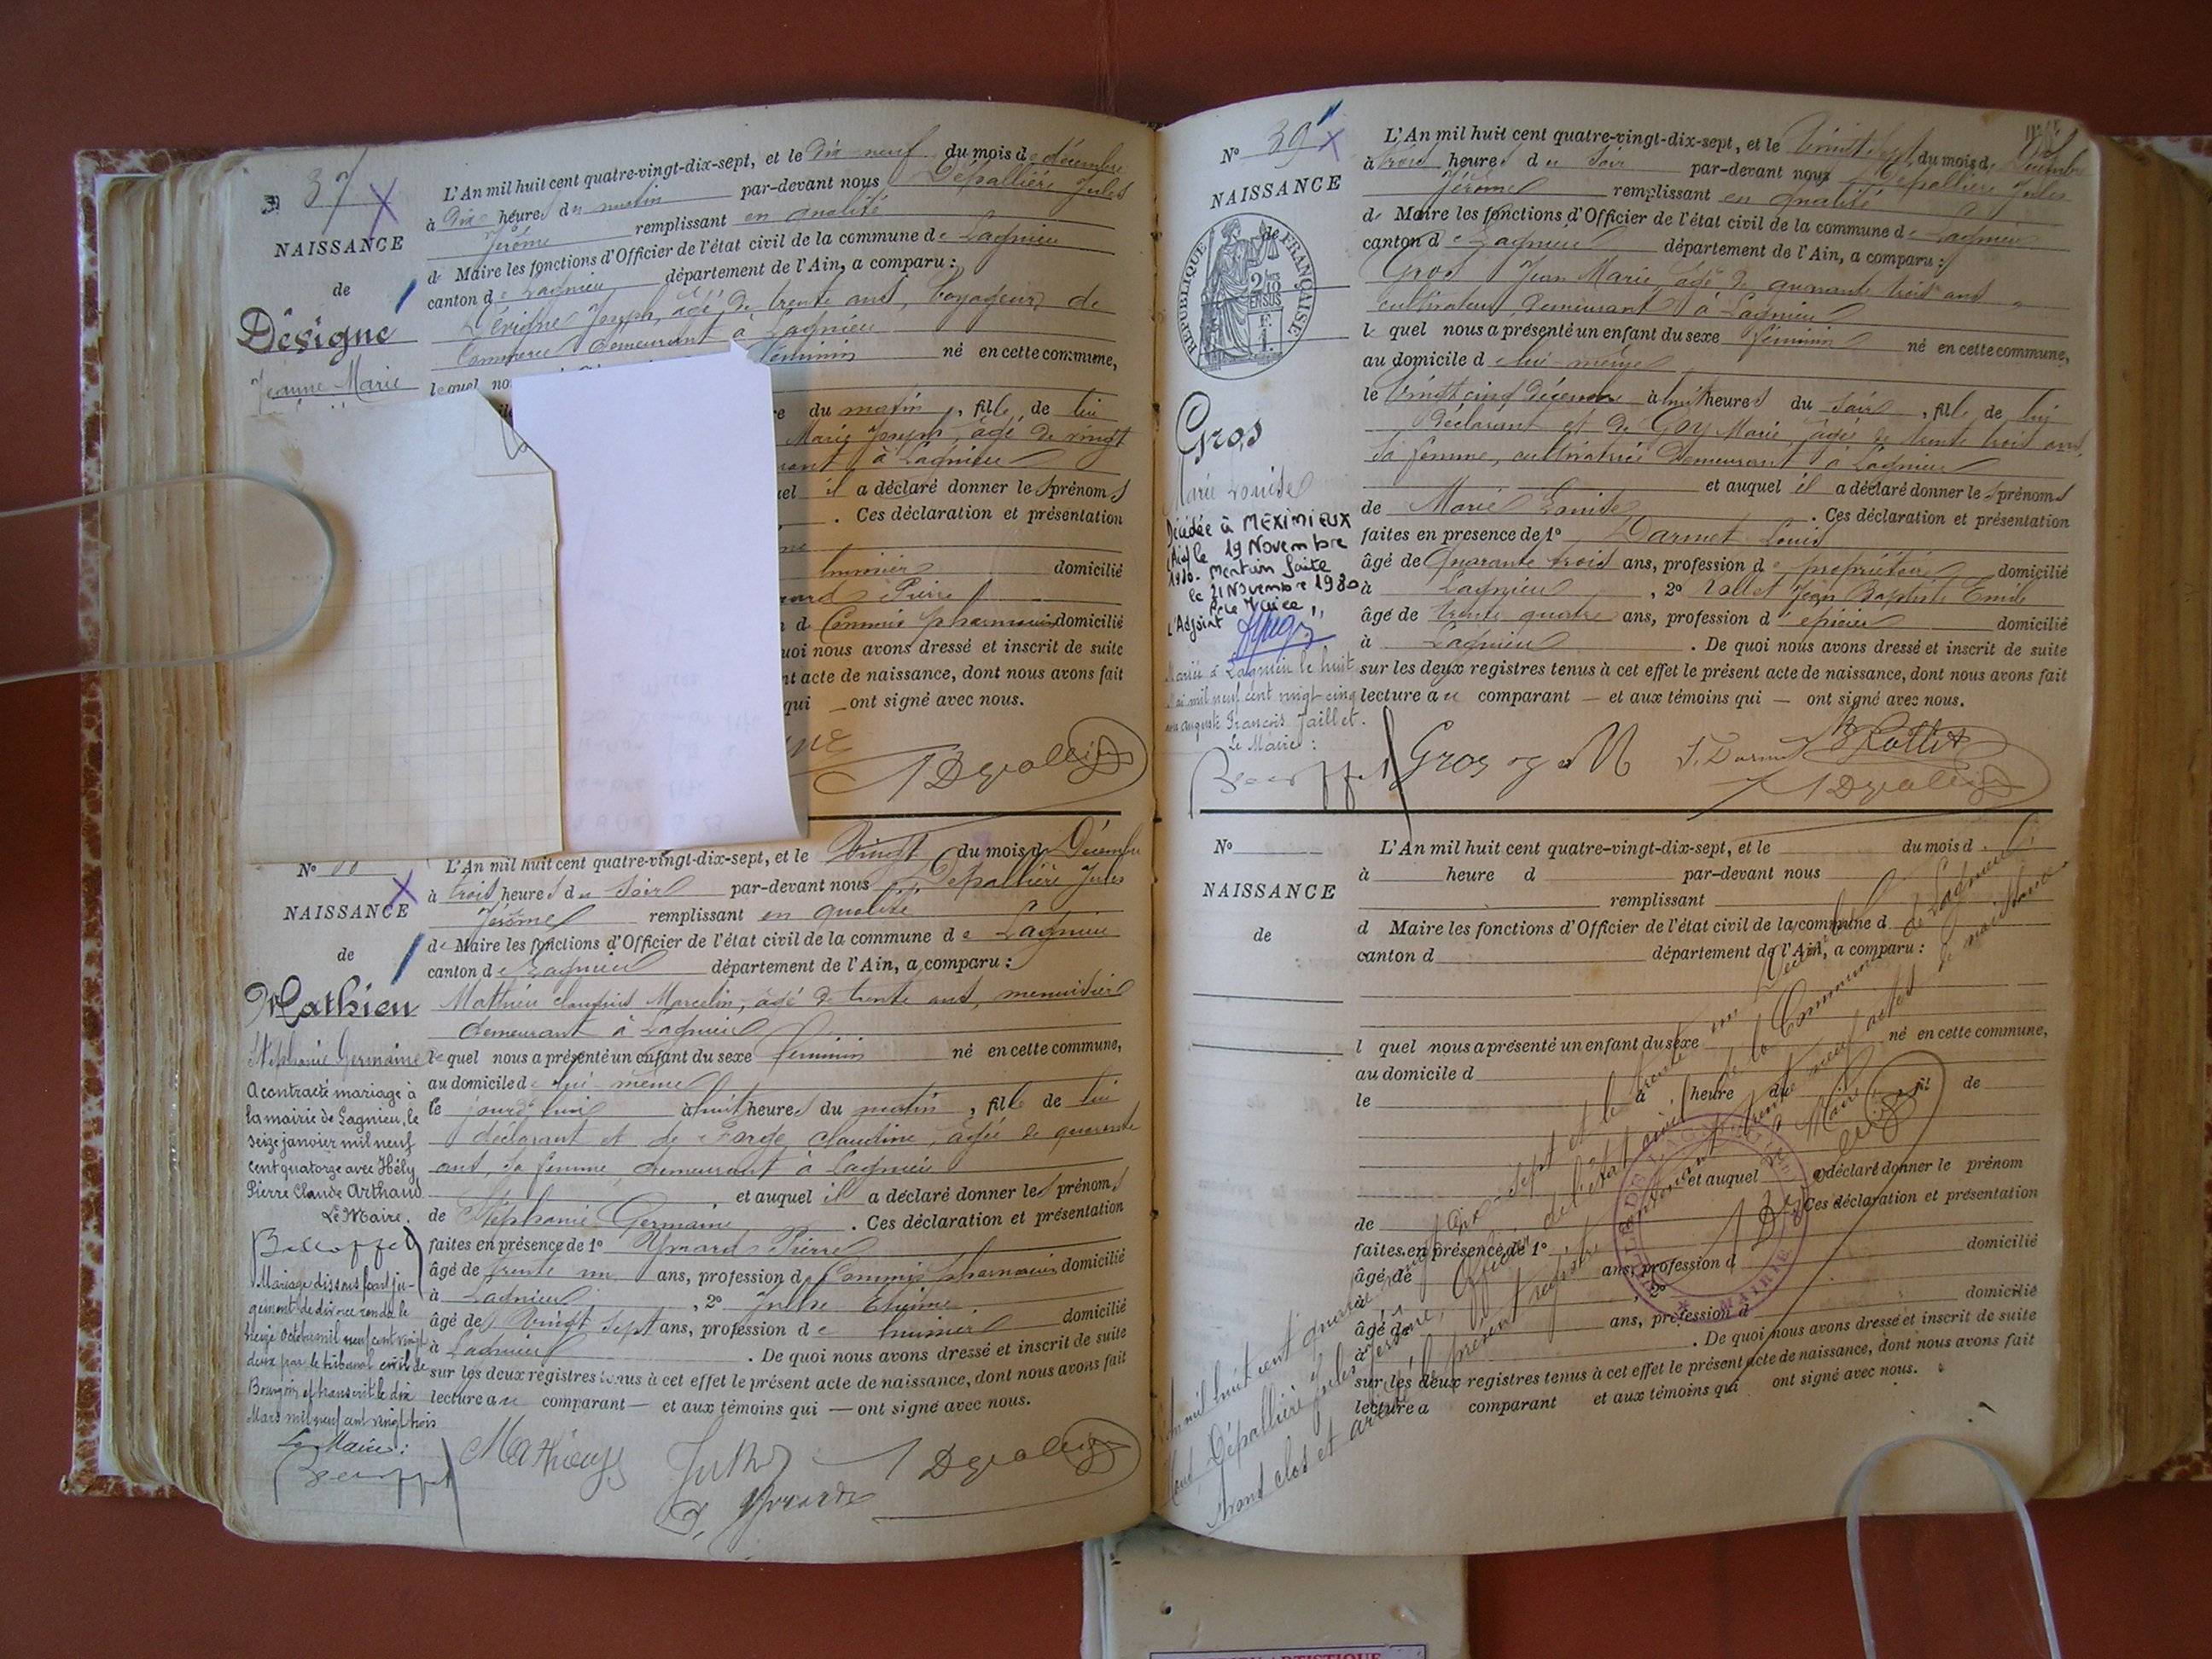 37
NAISSANCE
de
Désigne
Jeanne Marie
L'An mil huit cent quatre-vingt-dix-sept, et le dix-neuf du mois de décembre
à dix heures du matin par-devant nous Dépallière Jules
Jérôme remplissant en qualité
de Maire les fonctions d'Officier de l'état civil de la commune de Lagnieu
canton de Lagnieu département de l'Ain, a comparu :
Désigne Joseph, âgé de trente ans, voyageur de
Commerce demeurant à Lagnieu
lequel féminin né en cette commune,
du matin, fille de lui
Marie Joseph, âgé de vingt
à Lagnieu
il a déclaré donner les prénoms
. Ces déclaration et présentation
domicilié
Pierre
d Commis pharmacien domicilié
nous avons dressé et inscrit de suite
acte de naissance, dont nous avons fait
qui _ ont signé avec nous.
No
NAISSANCE
de
Mathieu
Stéphanie Germaine
A contracté mariage à
la mairie de Lagnieu, le
seize janvier mil neuf
cent quatorze avec Hély
Pierre Claude Arthaud
Le Maire.
Mariage dissous par ju-
gement de divorce rendu le
treize octobre mil neuf cent vingt
deux par le tribunal civil de
Bourgoin et transcrit le dix
Mars mil neuf cent vingt trois
Le Maire :
L'An mil huit cent quatre-vingt-dix-sept, et le Vingt du mois de Décembre
à trois heures du soir par-devant nous Dépallière Jules
Jérôme remplissant en qualité
de Maire les fonctions d'Officier de l'état civil de la commune de Lagnieu
canton de Lagnieu département de l'Ain, a comparu :
Mathieu Claudius Marcelin, âgé de trente ans, menuisier
demeurant à Lagnieu
lequel nous a présenté un enfant du sexe féminin né en cette commune,
au domicile de lui-même
le jourd'hui à huit heures du matin, fille de lui
déclarant et de Forge Claudine, âgée de quarante
ans, sa femme, demeurant à Lagnieu
et auquel il a déclaré donner les prénoms
de Stéphanie Germaine . Ces déclaration et présentation
faites en présence de 1° Ymard Pierre
âgé de trente un ans, profession de Commis pharmacien domicilié
à Lagnieu , 2°
âgé de Vingt sept ans, profession de domicilié
à Lagnieu . De quoi nous avons dressé et inscrit de suite
sur les deux registres tenus à cet effet le présent acte de naissance, dont nous avons fait
lecture au comparant — et aux témoins qui — ont signé avec nous.
Mathieu
No 39
NAISSANCE
de
RÉPUBLIQUE FRANÇAISE
Gros
Marie Louise
Décédée à MEXIMIEUX
(Ain) le 19 Novembre
1980. Mention faite
le 21 Novembre 1980
P. le Maire,
L'Adjoint
Mariée à Lagnieu le huit
Mai mil neuf cent vingt-cinq
Auguste François Jaillet.
Le Maire :
L'An mil huit cent quatre-vingt-dix-sept, et le Vingt sept du mois de Décembre
à trois heures du soir par-devant nous Dépallière Jules
Jérôme remplissant en qualité
de Maire les fonctions d'Officier de l'état civil de la commune de Lagnieu
canton de Lagnieu département de l'Ain, a comparu :
Gros Jean Marie, âgé de quarante trois ans
cultivateur, demeurant à Lagnieu
lequel nous a présenté un enfant du sexe féminin né en cette commune,
au domicile de lui-même
le Vingt cinq décembre à huit heures du soir, fille de lui
déclarant et de Goy Marie, âgée de trente trois ans
sa femme, cultivatrice demeurant à Lagnieu
et auquel il a déclaré donner les prénoms
de Marie Louise . Ces déclaration et présentation
faites en présence de 1° Darmet Louis
âgé de Quarante trois ans, profession de propriétaire domicilié
à Lagnieu , 2° Jean Baptiste Emile
âgé de trente quatre ans, profession d'épicier domicilié
à Lagnieu . De quoi nous avons dressé et inscrit de suite
sur les deux registres tenus à cet effet le présent acte de naissance, dont nous avons fait
lecture au comparant — et aux témoins qui — ont signé avec nous.
Gros
No
NAISSANCE
de
L'An mil huit cent quatre-vingt-dix-sept, et le du mois d
à heure d par-devant nous
remplissant
d Maire les fonctions d'Officier de l'état civil de la commune d
canton d département de l'Ain, a comparu :
l quel nous a présenté un enfant du sexe né en cette commune,
au domicile d
le à heure du fil de
et auquel a déclaré donner le prénom
de . Ces déclaration et présentation
faites en présence de 1°
âgé de ans, profession d domicilié
à , 2°
âgé de ans, profession d domicilié
à . De quoi nous avons dressé et inscrit de suite
sur les deux registres tenus à cet effet le présent acte de naissance, dont nous avons fait
lecture a comparant et aux témoins qui ont signé avec nous.
MAIRIE